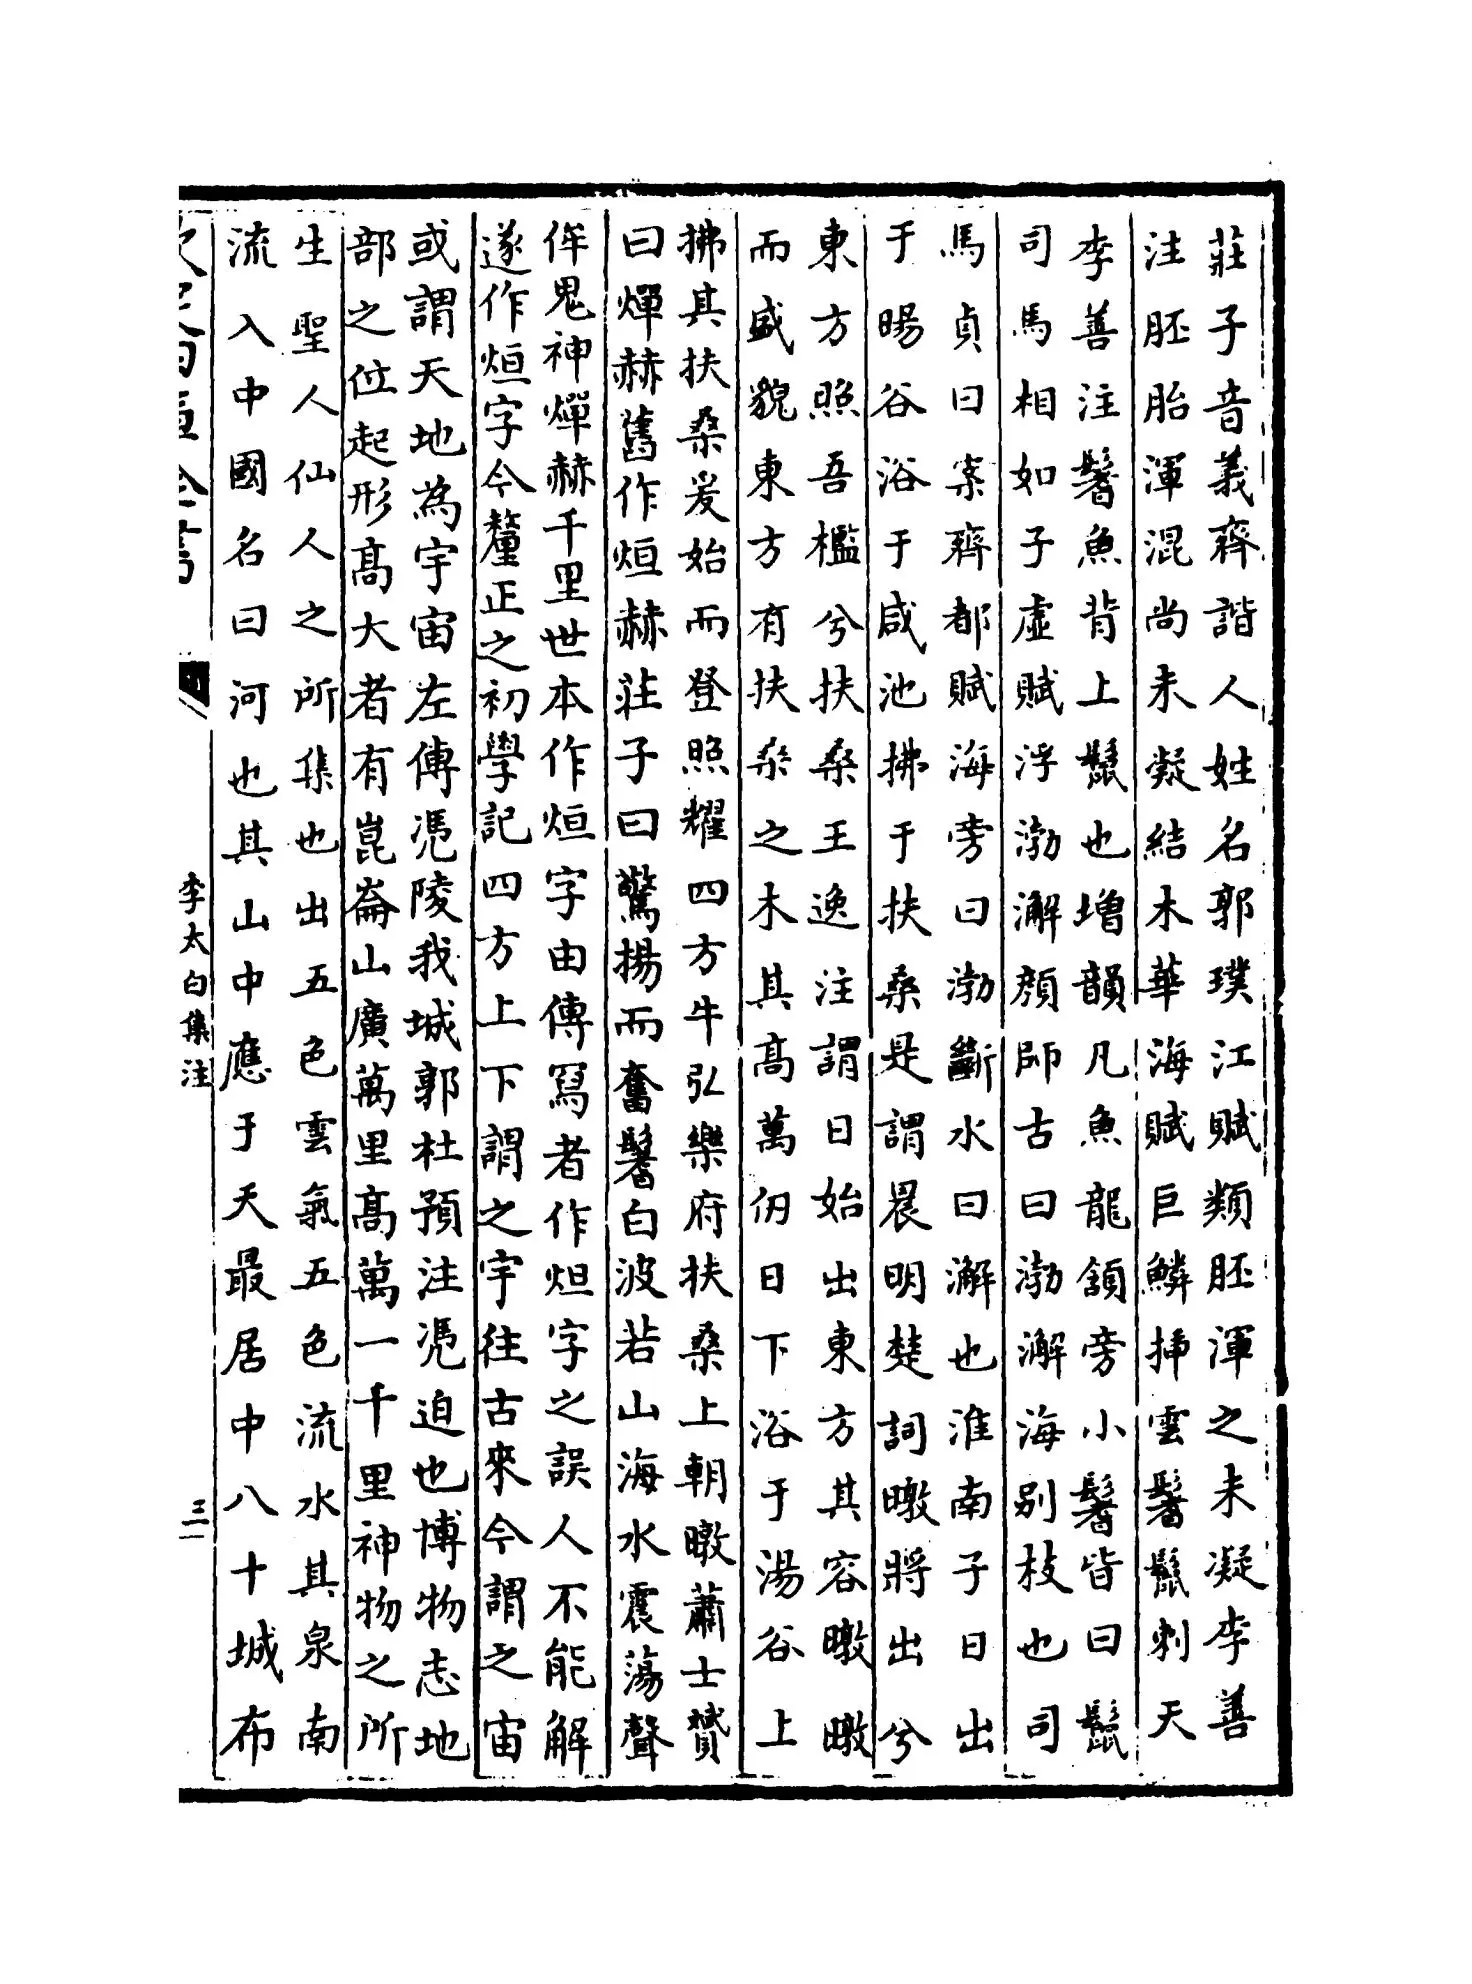 莊子音義齊諧人姓名郭璞江賦類胚渾之未凝李善
注胚胎渾混尚未凝結木華海賦巨鱗揷雲鬐鬛刺天
李善注鬐魚背上鬛也增韻凡魚龍頷旁小鬐皆曰鬛
司馬相如子虛賦浮渤澥顏師古曰渤澥海别枝也司
馬貞曰案齊都賦海旁曰渤斷水曰澥也淮南子日出
于暘谷浴于咸池拂于扶桑是謂晨明楚詞暾將出兮
東方照吾檻兮扶桑王逸注謂日始出東方其容暾暾
而盛貌東方有扶桑之木其髙萬仞日下浴于湯谷上
拂其扶桑爰始而登照耀四方牛弘樂府扶桑上朝暾蕭士贇
曰燀赫舊作烜赫莊子曰驚揚而奮鬐白波若山海水震蕩聲
侔鬼神燀赫千里世本作烜字由傳冩者作炟字之誤人不能解
遂作烜字今釐正之初學記四方上下謂之宇往古來今謂之宙
或謂天地為宇宙左傳馮陵我城郭杜預注馮迫也博物志地
部之位起形髙大者有崑崙山廣萬里髙萬一千里神物之所
生聖人仙人之所集也出五色雲氣五色流水其泉南
流入中國名曰河也其山中應于天最居中八十城布
李太白集注
三